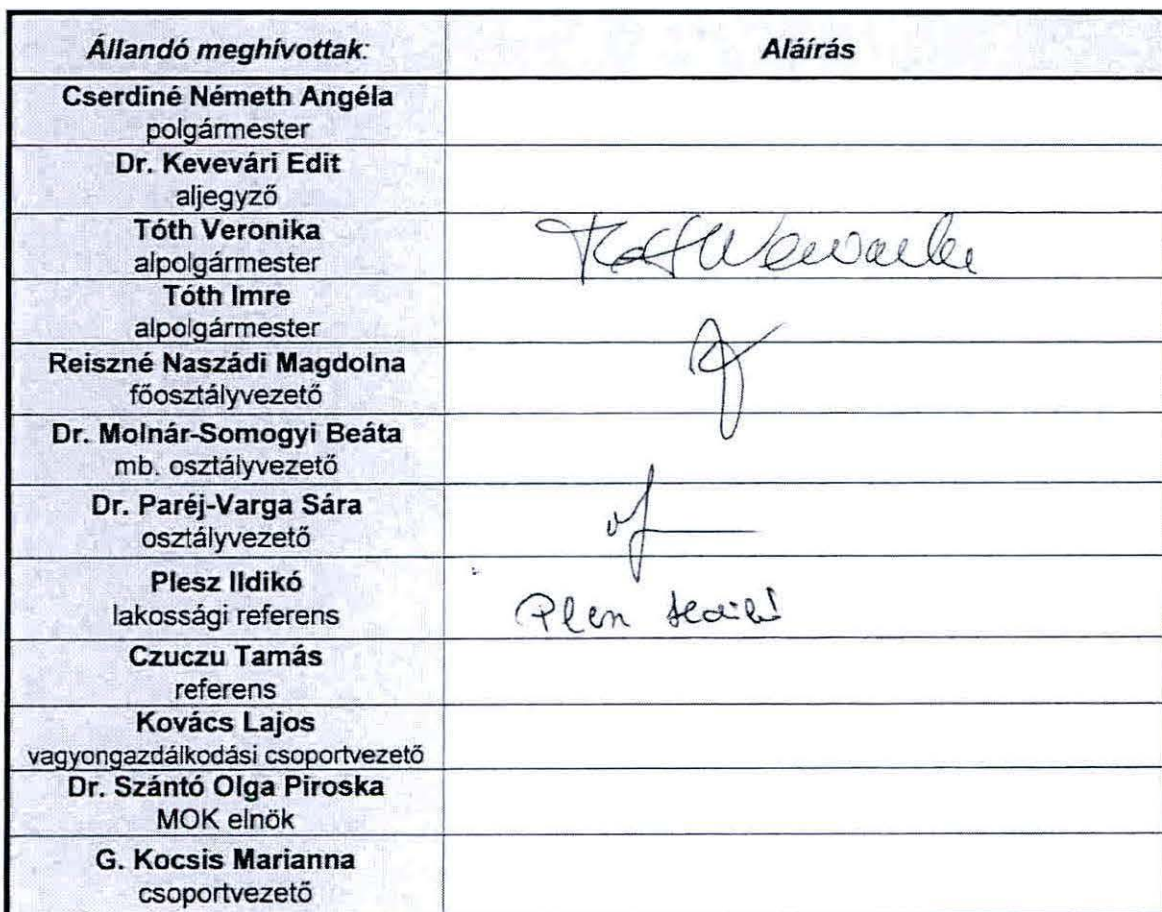 Állandó meghívottak: Aláírás
Cserdiné Németh Angéla
polgármester
Dr. Kevevári Edit
aljegyző
Tóth Veronika
alpolgármester
Tóth Imre
alpolgármester
Reiszné Naszádi Magdolna
főosztályvezető
Dr. Molnár-Somogyi Beáta
mb. osztályvezető
Dr. Paréj-Varga Sára
osztályvezető
Plesz Ildikó
lakossági referens
Czuczu Tamás
referens
Kovács Lajos
vagyongazdálkodási csoportvezető
Dr. Szántó Olga Piroska
MOK elnök
G. Kocsis Marianna
csoportvezető